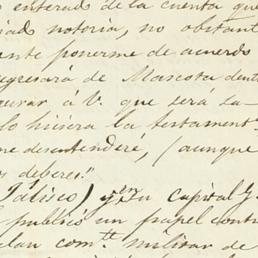 enterado de la cuenta que
notoria, no obstant
ente ponerme de acuerdo
egresará de Mascota dent
gurar á V. que será sa-
lo hiciera la testament
me desentenderé, (aunque
s deberes."
Jalisco) y en su Capital G
publicó un papel contr
clan com.te militar de